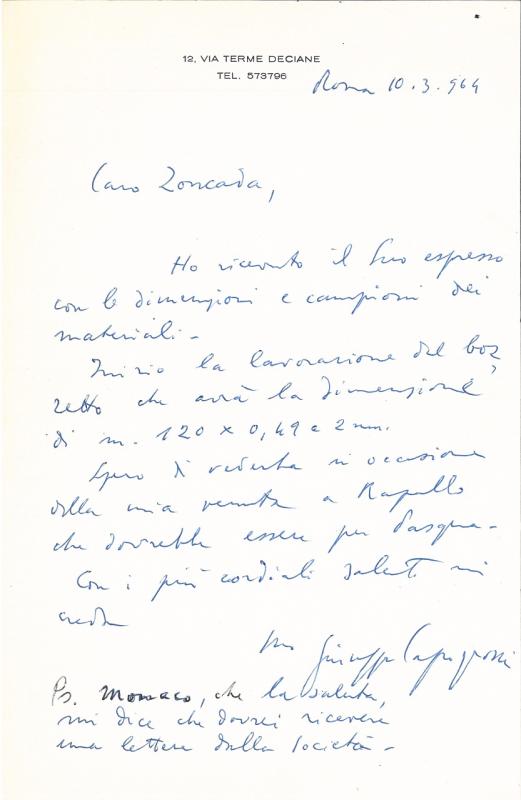 12, VIA TERME DECIANE
TEL. 573796
Roma 10.3.964
Caro Zoncada,
Ho ricevuto il Suo espresso
con le dimensioni e campioni dei
materiali -
Inizio la lavorazione del boz
zetto che avrà la dimensione
di m. 120 x 0,49 e 2 mm.
Spero di vederla in occasione
della mia venuta a Rapallo
che dovrebbe essere per Pasqua -
Con i più cordiali saluti mi
creda
Suo Giuseppe Capogrossi
Ps. Monaco, che la saluta,
mi dice che dovrei ricevere
una lettera dalla Società -